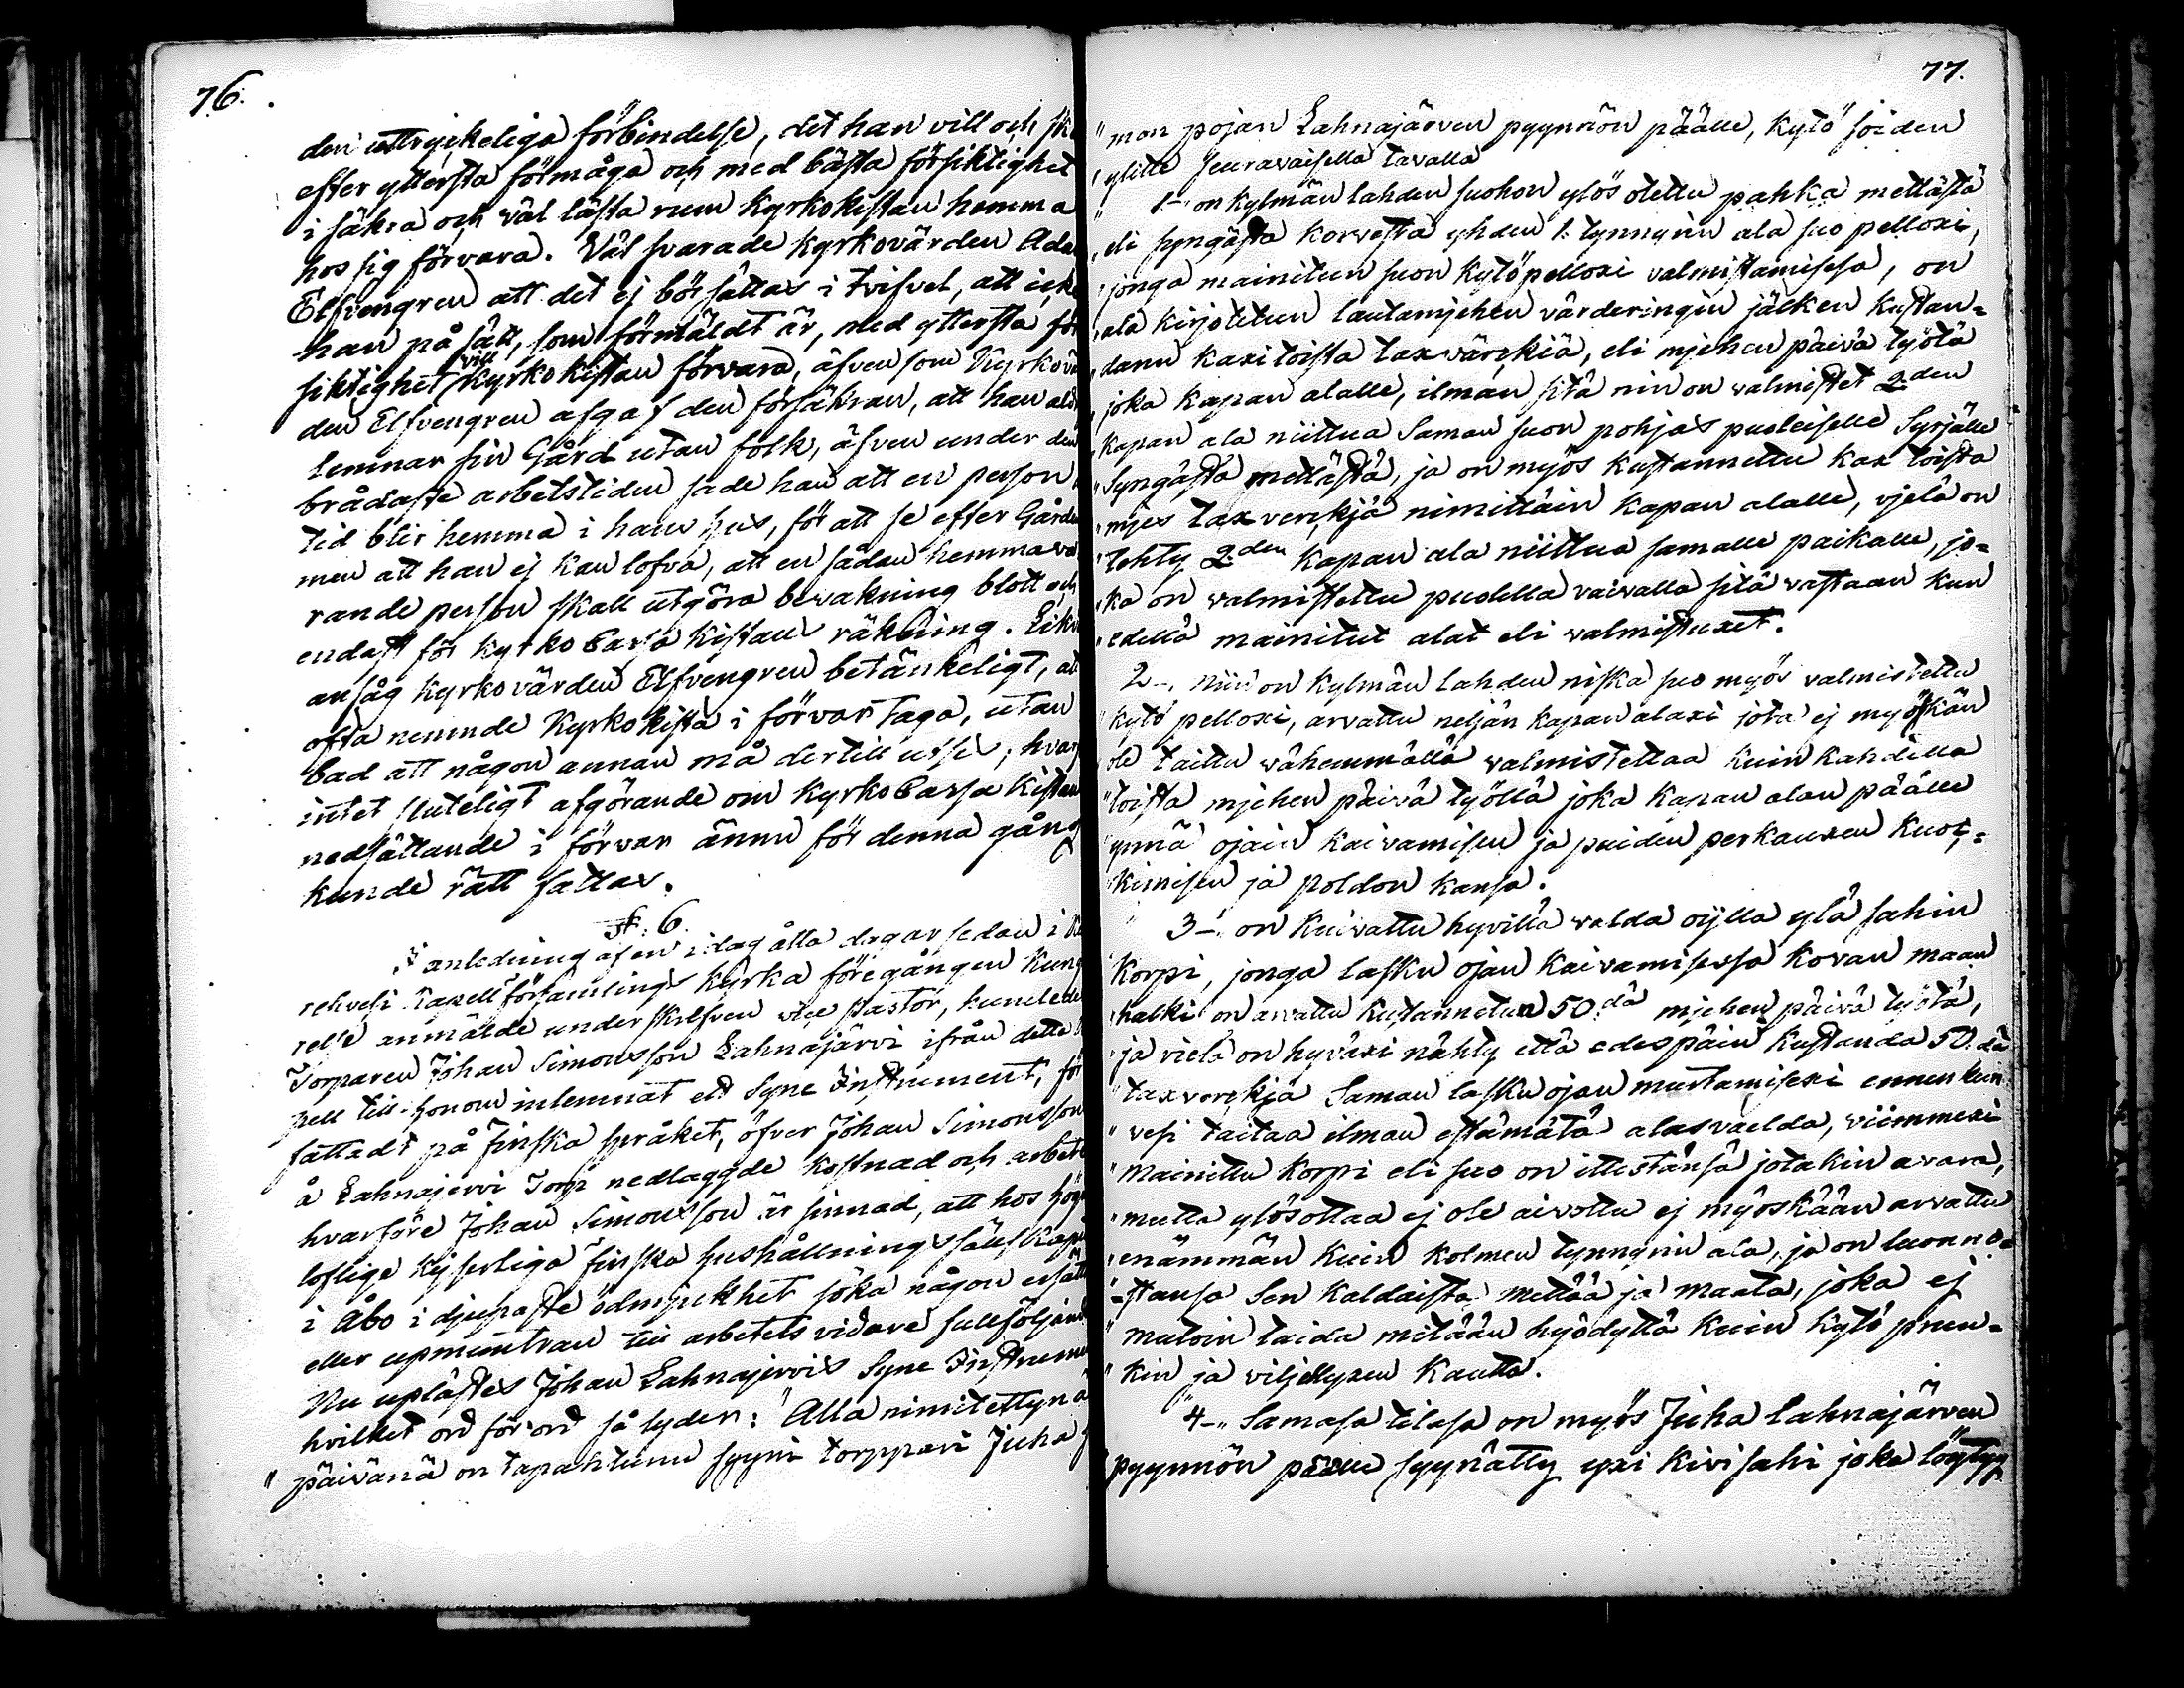 76.
den uttryckeliga förbindelse, det han vill och ska
efter yttersta förmåga och med bästa försiktighet
i säkra och väl låsta rum Kyrkokistan hemma
hos sig förvara. Väl svarade Kyrkovärden Ada
Elfvengren att det ej bör sättas i tvifvel, att icke
han på sätt, som förmäldt är, med yttersta för
siktighet vill Kyrkokistan förvara, äfvensom Kyrkovä
den Elfvengren afgaf den försäkran, att han ald
lemnar sin Gård utan folk, äfven under den
brådaste arbetstiden sade han att en person
tid blir hemma i hans hus, för att se efter Gården
men att han ej kan lofva, att en sådan hemmava
rande person skall utgöra bevakning blott och
endast för Kyrko Cassa Kistans räkning.
ansåg Kyrkovärden Elfvengren betänkeligt, at
ofta nemnde Kyrkokista i förvar taga, utan
bad att någon annan må dertill utses; hvar
intet sluteligt afgörande om Kyrko Cassa Kistan
nedsättande i förvar ännu för denna gång
kunde rätt fattas.
§. 6.
I anledning af en i dag åtta dagar sedan i
rehvesi Kapell församlings Kyrka föregången Kung
relse anmälde underskrefven vice Pastor, hurule
Torparen Johan Simonsson Lahnajärvi ifrån detta
pell till honom inlemnat ett Syne Instrument, för
fattadt på finska språket, öfver Johan Simonsson
å Lahnajervi Torp nedlaggde kostnad och arbete
hvarföre Johan Simonsson är sinnad, att hos hög
loflige Kejserliga finska hushållnings sällskape
i Åbo i djupaste ödmjukhet söka någon ersätt
eller upmuntran till arbetets vidare fullföljand
Nu uplästes Johan Lahnajervis Syne Instrume
hvilket ord för ord så lyder: "Alla nimitettynä
" päivänä on tapahtunu syyni torppari Juha
77.
" mon pojan Lahnajärven pyynnön päälle, Kytö soiden
" ylitte seuravaisella tavalla
" 1- on Kylmän lahden suohon ylös otettu pahka mettästä
" eli syngästä korvesta yhden 1. tynnyrin ala suo pelloxi,
" jonga mainitun suon Kytöpelloxi valmistamisesa, on
" ala kirjotetun lautamjehen värderingin jälken kustan=
" danu kaxitoista taxvärckiä, eli mjehen päivä työtä
" joka kapan alalle, ilman sitä nin on valmistet 2.den
" Kapan ala niittua Saman suon pohjas puoleiselle Syrjälle
" Syngästä mettästä, ja on myös kustannettu kax toista
" mjes taxverckjä nimittäin kapan alalle, vjelä on
" tehty 2.den kapan ala niittua samalle paikalle, jo=
" ka on valmistettu puolella vaivalla sitä vastaan kun
" edellä mainitut alat eli valmistuxet.
2-. niin on Kylmän lahden niska suo myös valmistettu
" kytö pelloxi, arvattu neljän kapan alaxi jota ej myöskän
" ole taittu vähemmällä valmistettaa kuin kahdella
" toista mjehen päivä työllä joka kapan alan päälle
" ynnä ojain kaivamisen ja puiden perkauxen kuoc=
" kimisen ja poldon kansa.
" 3- on kuivattu hyvillä valda ojlla ylä sahin
" Korpi, jonga lasku ojan kaivamisessa kovan maan
" halki on arvattu kustannetun 50.dä mjehen päivä työtä,
" ja vielä on hyväxi nähty että edespäin kustanda 50.dä
" taxverckjä Saman lasku ojan mustamisexi ennen kun
" vesi taitaa ilman estämätä alasvaelda, viimmexi
" Mainittu korpi eli suo on ittestänsä jotakin avara,
" mutta ylösottaa ej ole aivottu ej myöskään arvattu
" enämmän kuin kolmen tynnyrin ala, ja on luonno=
"=stansa Sen kaldaista mettää ja maata, joka ej
" mutoin taida mitään hyödyttä kuin kytö prun=
" kin ja viljellyxen kautta.
" 4-. Samasa tilasa on myös Juha Lahnajärven
pyynnön päälle syynätty yxi Kivi sahi joka löyty